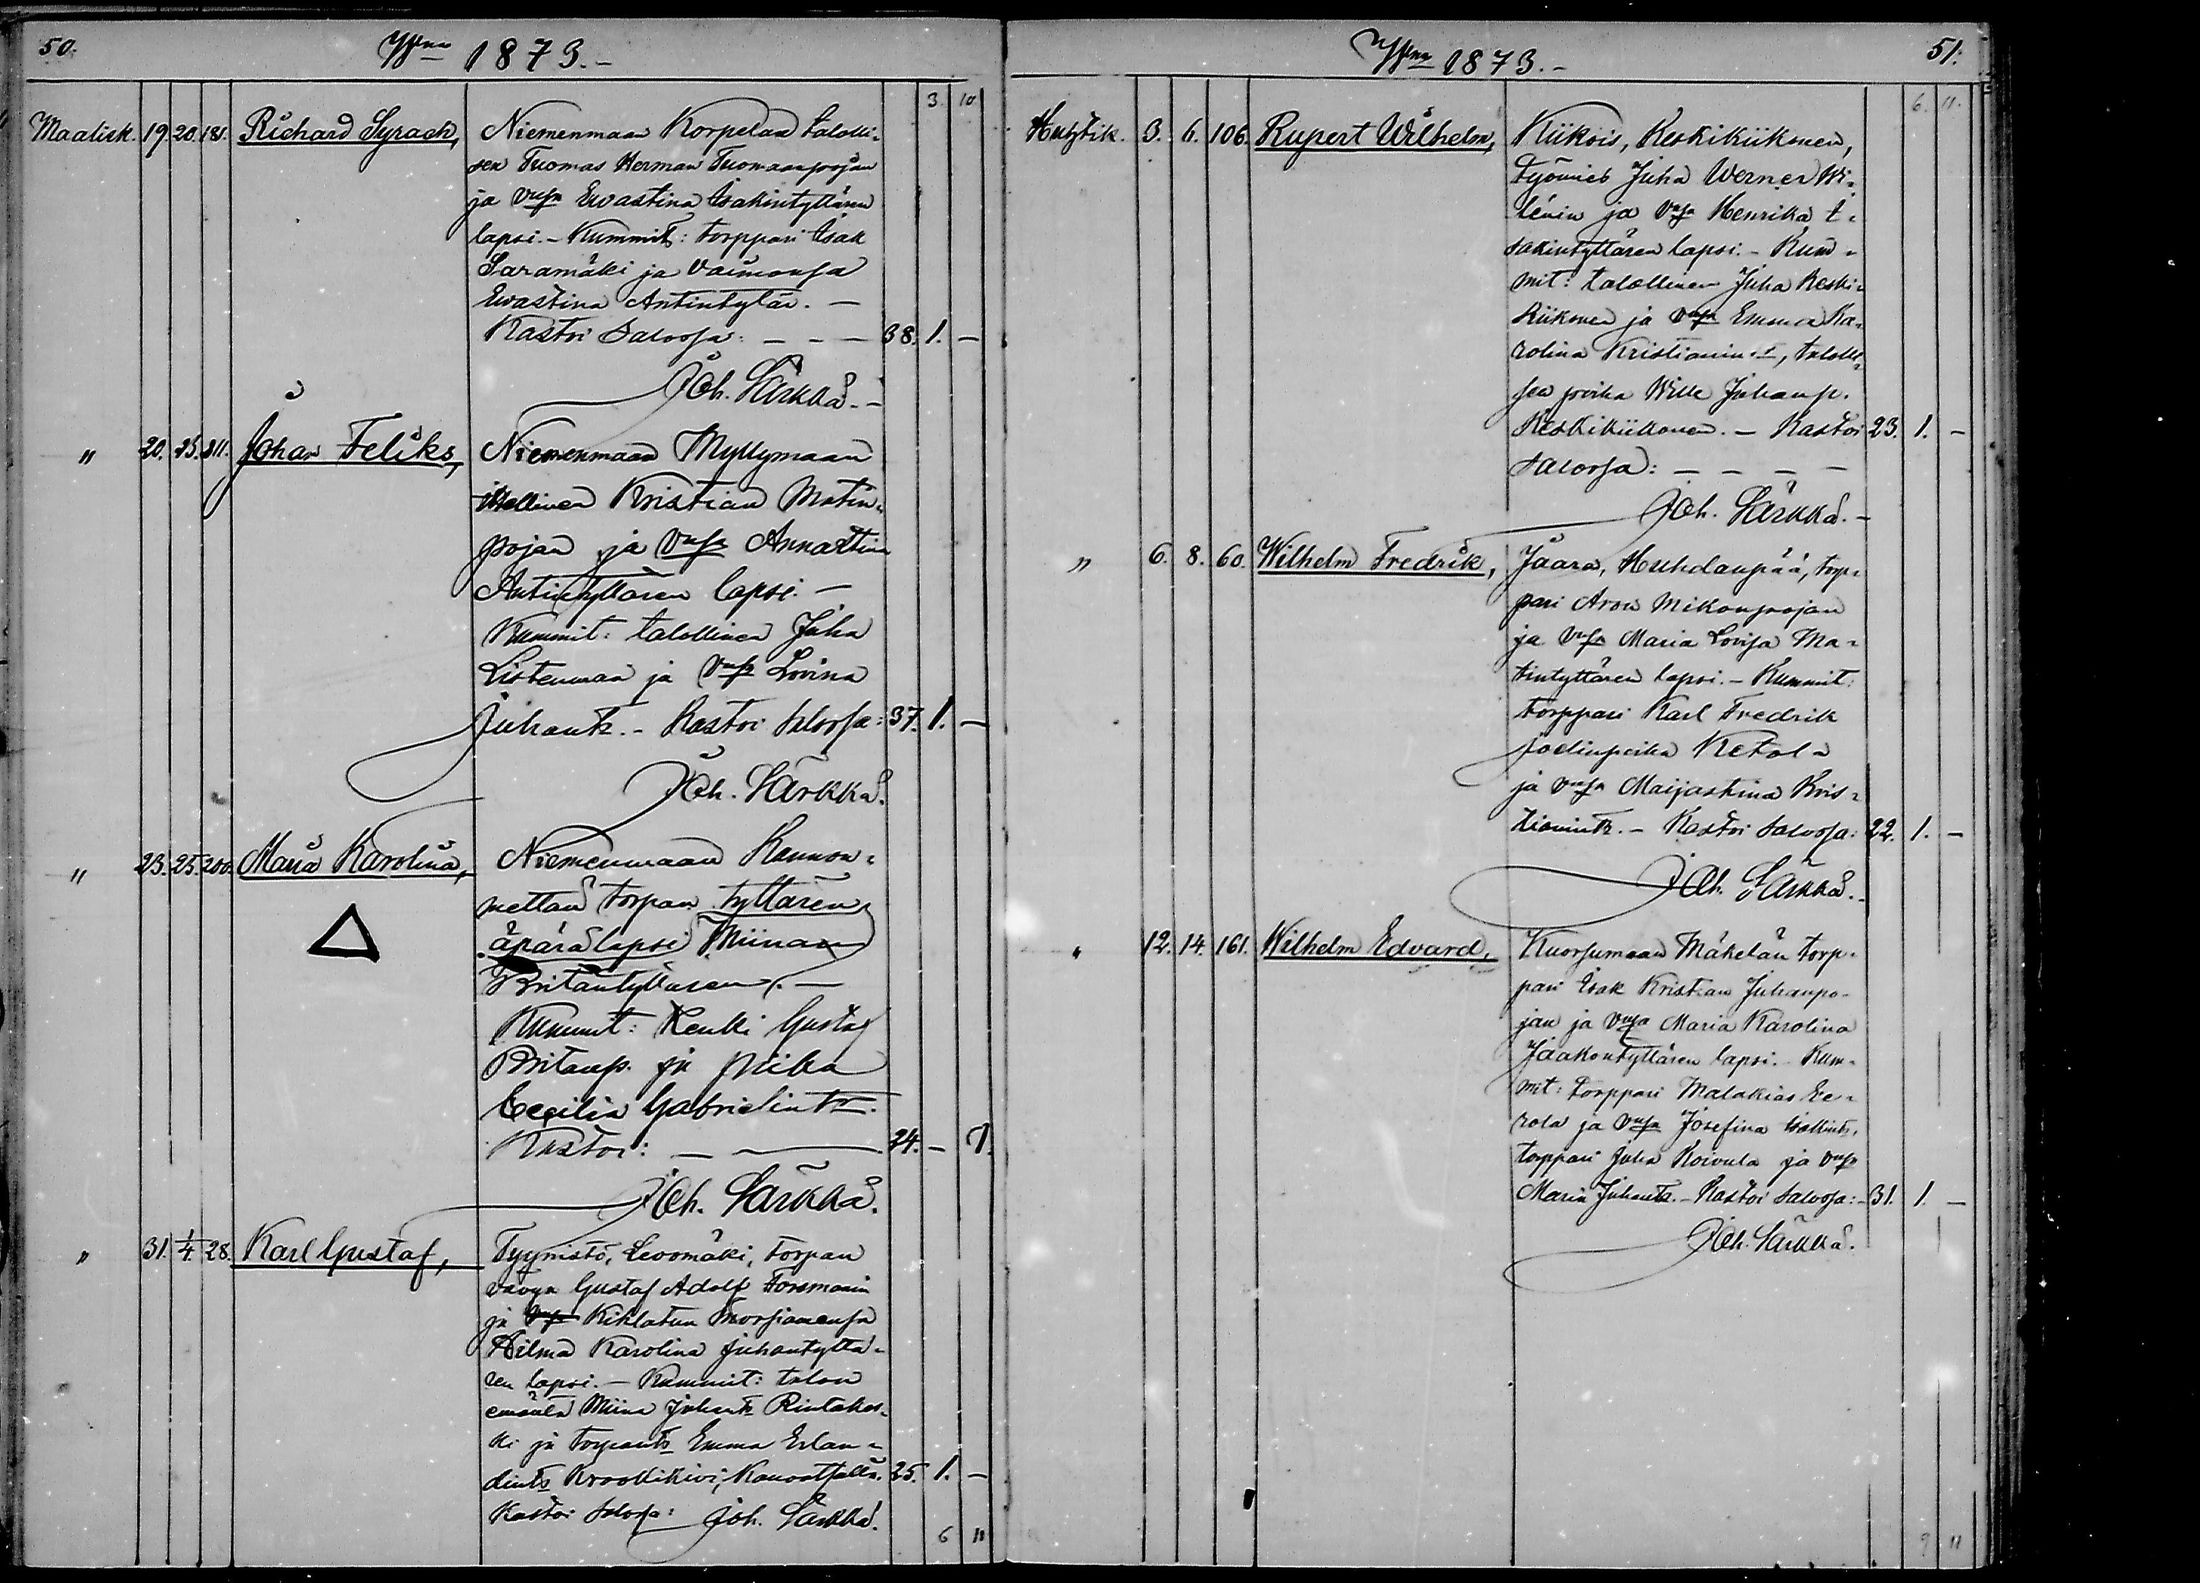 50.
Wna 1873.-
3. 10
Maalisk. 19. 20. 181. Richard Syrach, Niemenmaan Korpelan talolli-
sen Tuomas Herman Tuomaanpojan
ja vmsa Ewastina Isakintyttären
lapsi. - Kummit: torppari Isak
Saramäki ja vaimonsa
Ewastina Antintytär. -
Kastoi Salossa: - - - 38. 1. -
Joh. Särkkä. -
" 20. 23. 211. Johan Feliks, Niemenmaan Myllymaan
itsellinen Kristian Matin-
pojan ja vmsa Annastina
Antintyttären lapsi. -
Kummit: talollinen Juha
Listenmaa ja vmsa Lovina
Juhantr. - Kastoi Salossa: 37. 1. -
Joh. Särkkä.
" 23. 25. 200. Maria Karolina, Niemenmaan Kannon-
mettan torpan tyttären
äpärälapsi Miinan
Britantyttären. -
Kummit: Renki Gustaf
Britanp. ja piika
Cecilia Gabrielintr.
Kastoi: - - 24. - 1.
Joh. Särkkä.
" 31. 1/4. 28. Karl Gustaf, Tyynistö, Levomäki, torpan
vävyn Gustaf Adolf Forsmanin
ja vmsa Kihlatun morsiamensa
Hilma Karolina Juhantyttä-
ren lapsi. - Kummit: talon
emäntä Miina Juhantr Rintakos-
ki ja torpantr Emma Erlan-
dintr Kroottikivi, Kanvatsalta. 25. 1. -
Kastoi Salossa: Joh. Särkkä.
6 11
Wna 1873.-
51.
6. 11.
Huhtik. 3. 6. 106. Rupert Wilhelm, Kiikois, Keskikiikonen,
Työmies Juha Werner Wi-
lénin ja vmsa Henrika I-
sakintyttären lapsi. - Kum-
mit: talollinen Juha Keski-
kiikonen ja vmsa Emma Ka-
rolina Kristianin tr, talolli-
sen poika Wille Juhanp.
Keskikiikonen. - Kastoi 23. 1. -
Salossa: - - - -
Joh. Särkkä. -
" 6. 8. 60. Wilhelm Fredrik, Jaara, Huhdanpää, torp-
pari Aron Mikonpojan
ja vmsa Maria Lovisa Ma-
tintyttären lapsi. - Kummit:
torppari Karl Fredrik
Joelinpoika Ketola
ja vmsa Maijastina Kris-
tianintr. - Kastoi Salossa: 22. 1. -
Joh. Särkkä.
" 12. 14. 161. Wilhelm Edvard, Kuorsumaan Mäkelän torp-
pari Isak Kristian Juhanpo-
jan ja vmsa Maria Karolina
Jaakontyttären lapsi. - Kum-
mit: torppari Malakias Ee-
rola ja vmsa Josefina
torppari Juha Koivula ja vmsa
Maria Juhantr. - Kastoi Salossa: - 31. 1. -
Joh. Särkkä.
9 11